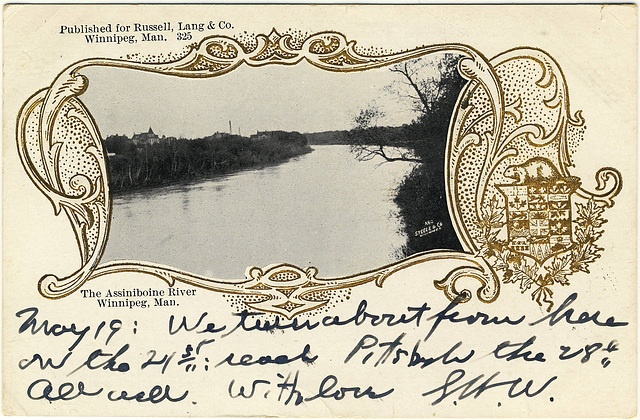 Published for Russell, Lang & Co.
Winnipeg, Man. 325
STEELE & Co
The Assiniboine River
Winnipeg, Man.
May 19: We turn about from here
on the 21st: reach Pittsburgh the 28th
All well. With love S.H.W.